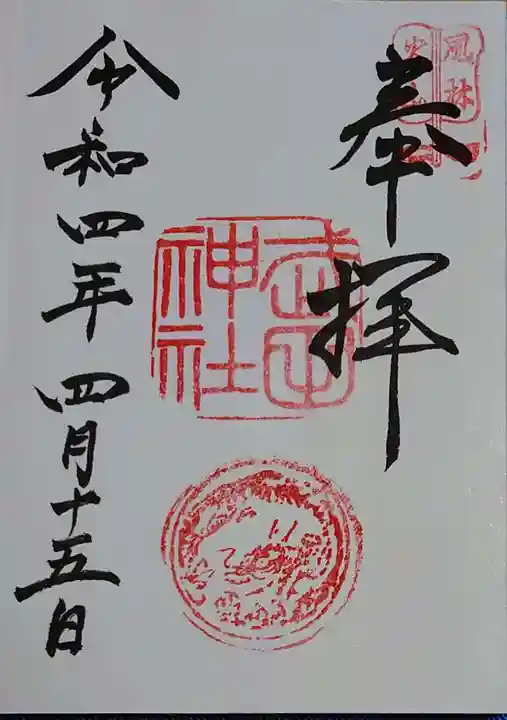 奉拝
風林火山
武田神社
令和四年四月十五日